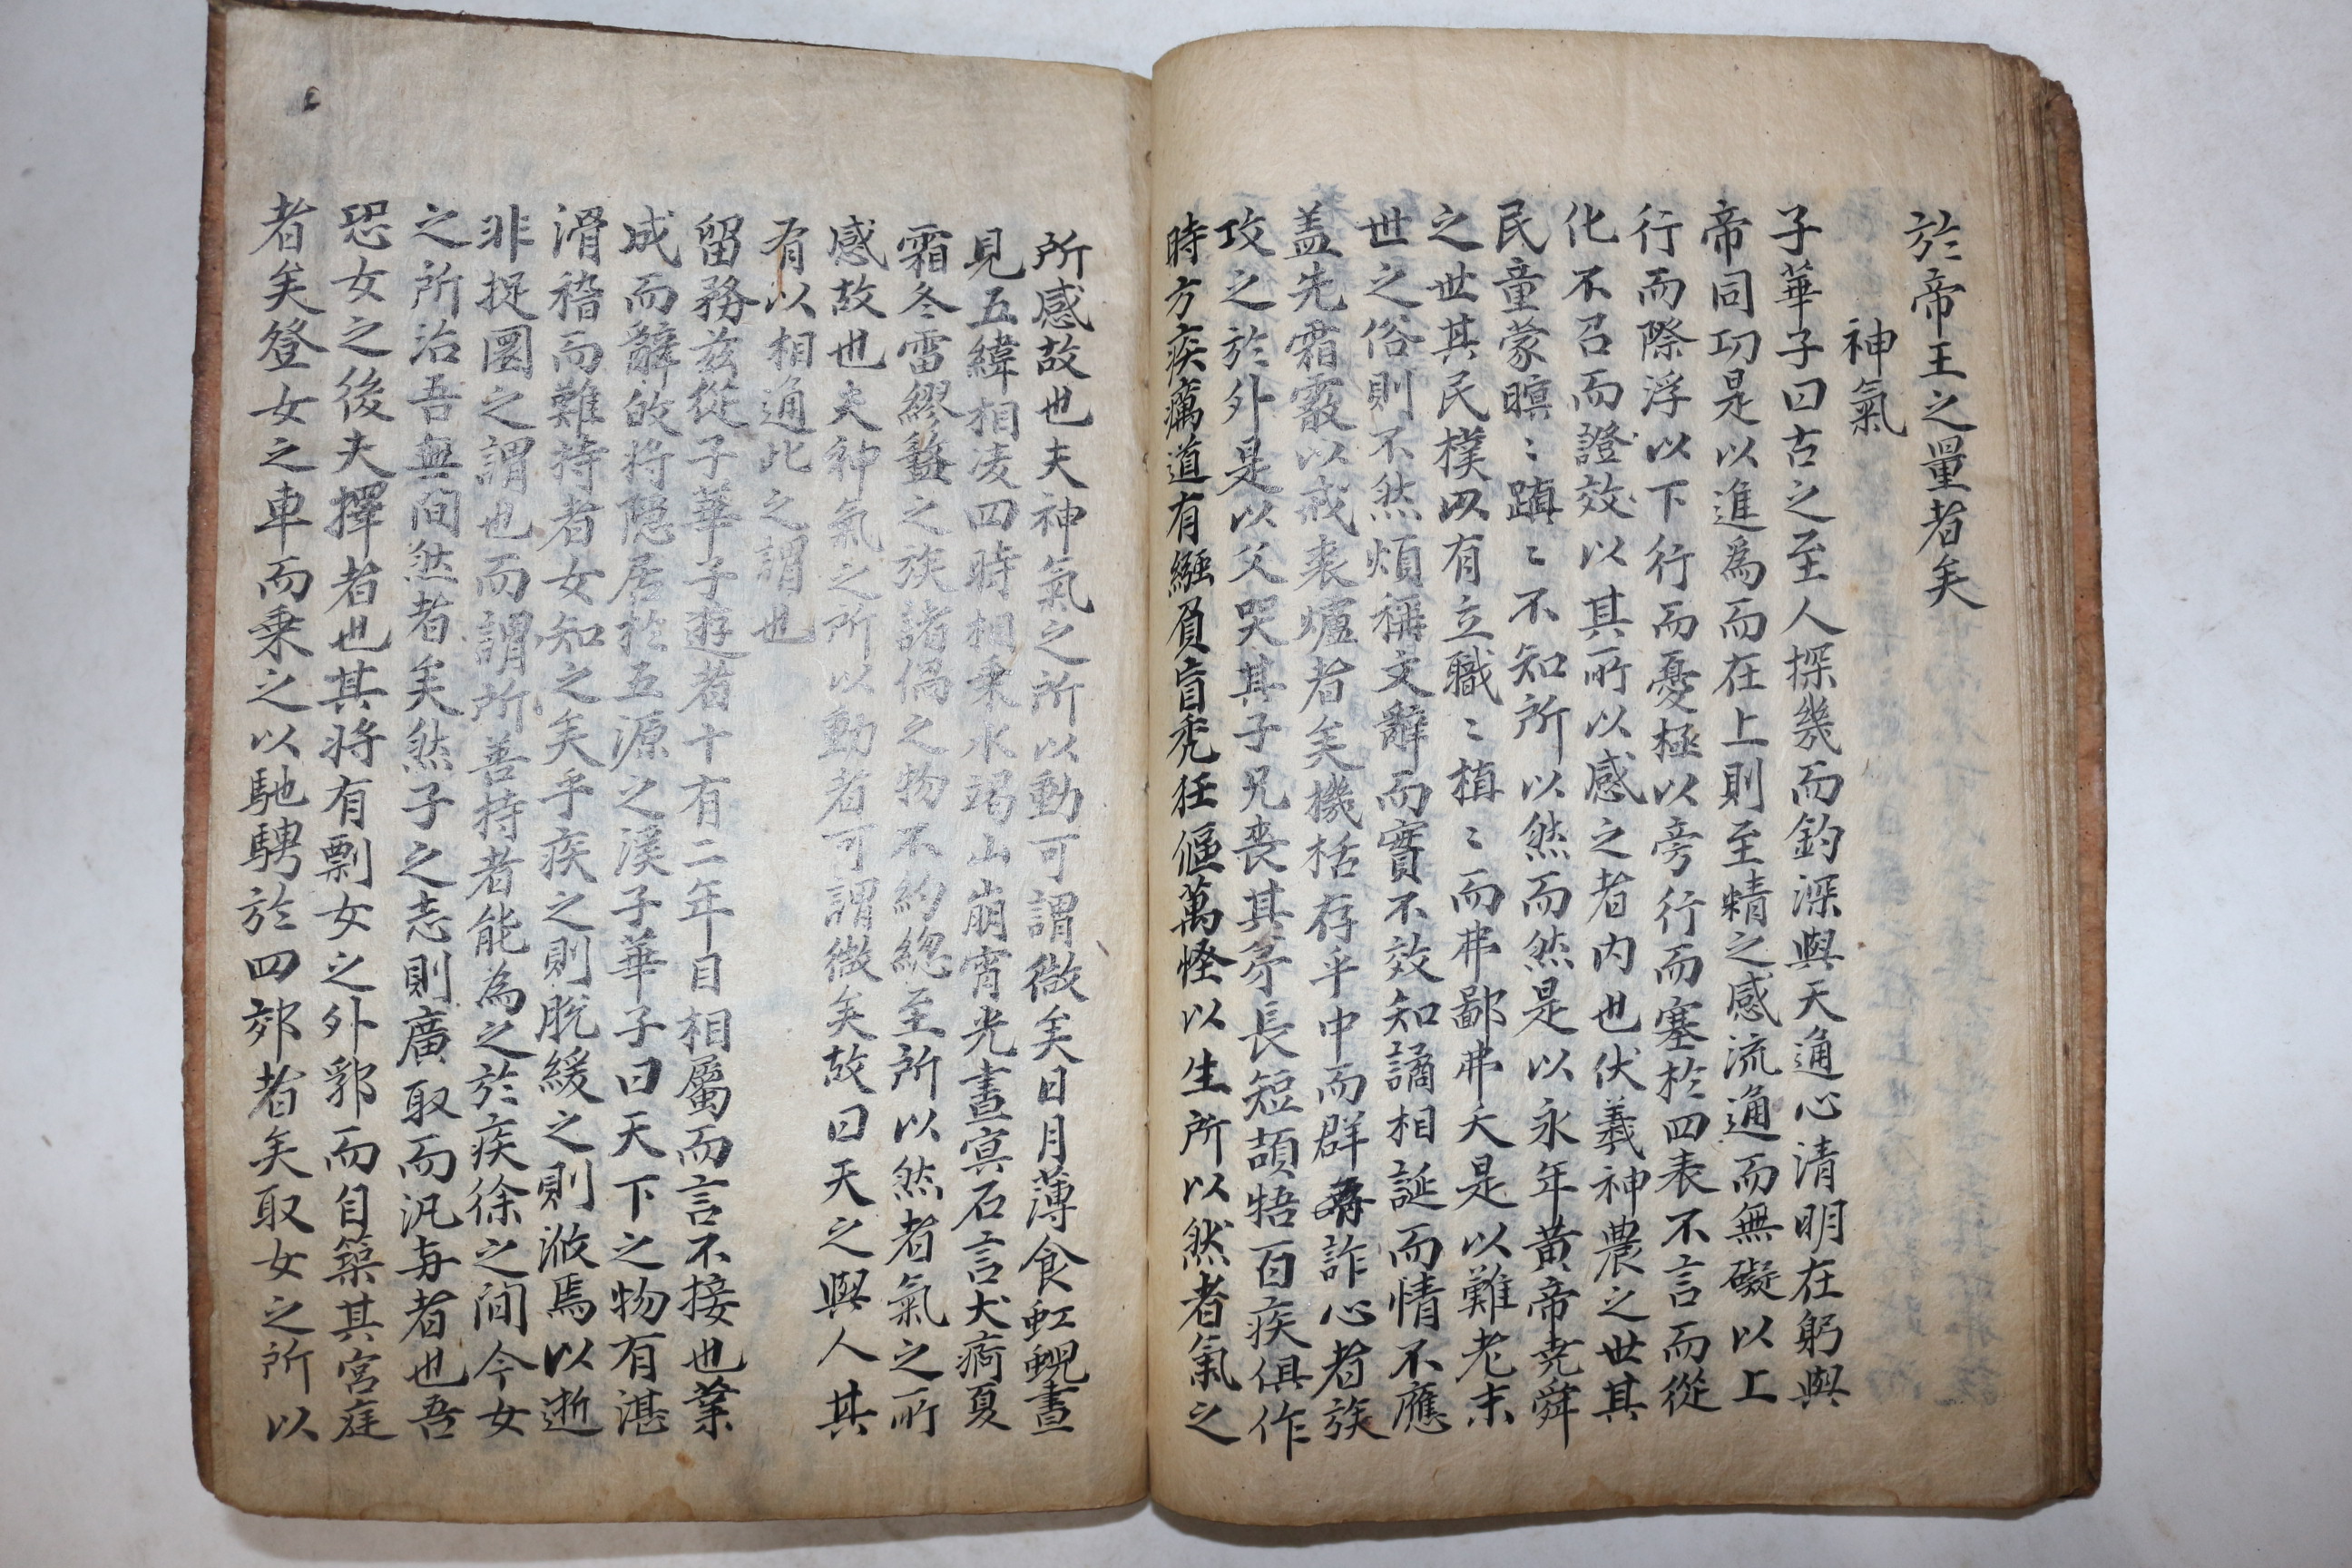 於帝王之量者矣
神氣
子華子曰古之至人探幾而鈞深與天通心清明在躬與
帝同功是以進爲而在上則至精之感流通而無礙以上
行而際浮以下行而憂極以旁行而塞於四表不言而從
化不召而證效以其所以感之者内也伏羲神農之世其
民童蒙瞑〻蹎〻不知所以然而然是以永年黄帝堯舜
之世其民樸以有立職〻植〻而弗鄙弗夭是以難老末
世之俗則不然煩稱文辭而實不效知譎相誕而情不應
盖先霜霰以戒裘爐者矣機栝存乎中而群有詐心者族
攻之於外是以父哭其子兄喪其弟長短頡牾百疾俱作
時方疾癘道有繦負盲秃狂傴萬怪以生所以然者氣之
所感故也夫神氣之所以動可謂微矣日月薄食虹蜺晝
見五緯相凌四時相乗水竭山崩宵光晝㝠石言犬痾夏
霜冬雷繆盭之族諸僞之物不約總至所以然者氣之所
感故也夫神氣之所以動者可謂微矣故曰天之與人其
有以相通此之謂也
留務茲從子華子遊者十有二年目相屬而言不接也業
成而辭故将隐居於五源之溪子華子曰天下之物有湛
滑稽而難持者女知之矣乎疾之則脱緩之則滺焉以逝
非捉圂之謂也而謂所善持者能為之於疾徐之间今女
之所治吾無间然者矣然子之志則廣取而汎与者也吾
恐女之後夫擇者也其将有剽女之外郛而自築其宮庭
者矣登女之車而乗之以馳騁於四郊者矣取女之所以